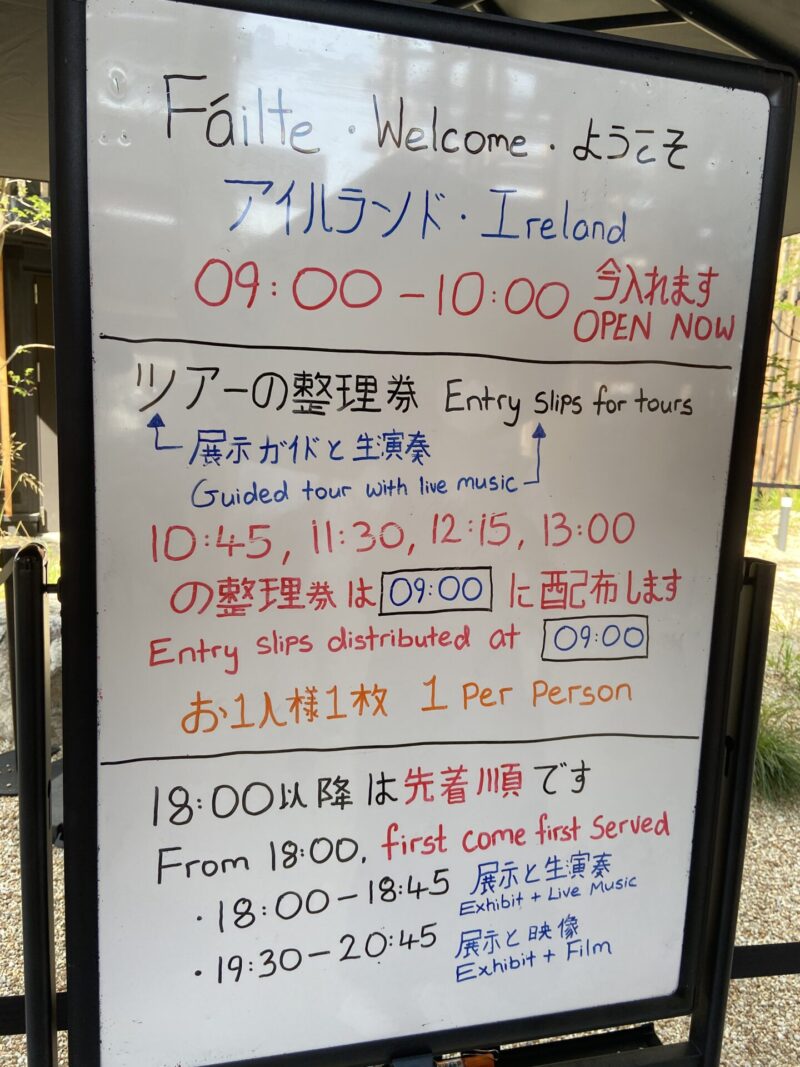 Fáilte · Welcome · ようこそ
アイルランド · Ireland
09:00 - 10:00 今入れます
OPEN NOW
ツアーの整理券 Entry slips for tours
展示ガイドと生演奏
Guided tour with live music
10:45, 11:30, 12:15, 13:00
の整理券は 09:00 に配布します
Entry slips distributed at 09:00
お1人様1枚 1 per person
18:00以降は先着順です
From 18:00, first come first served
· 18:00 - 18:45 展示と生演奏
Exhibit + Live Music
· 19:30 - 20:45 展示と映像
Exhibit + Film